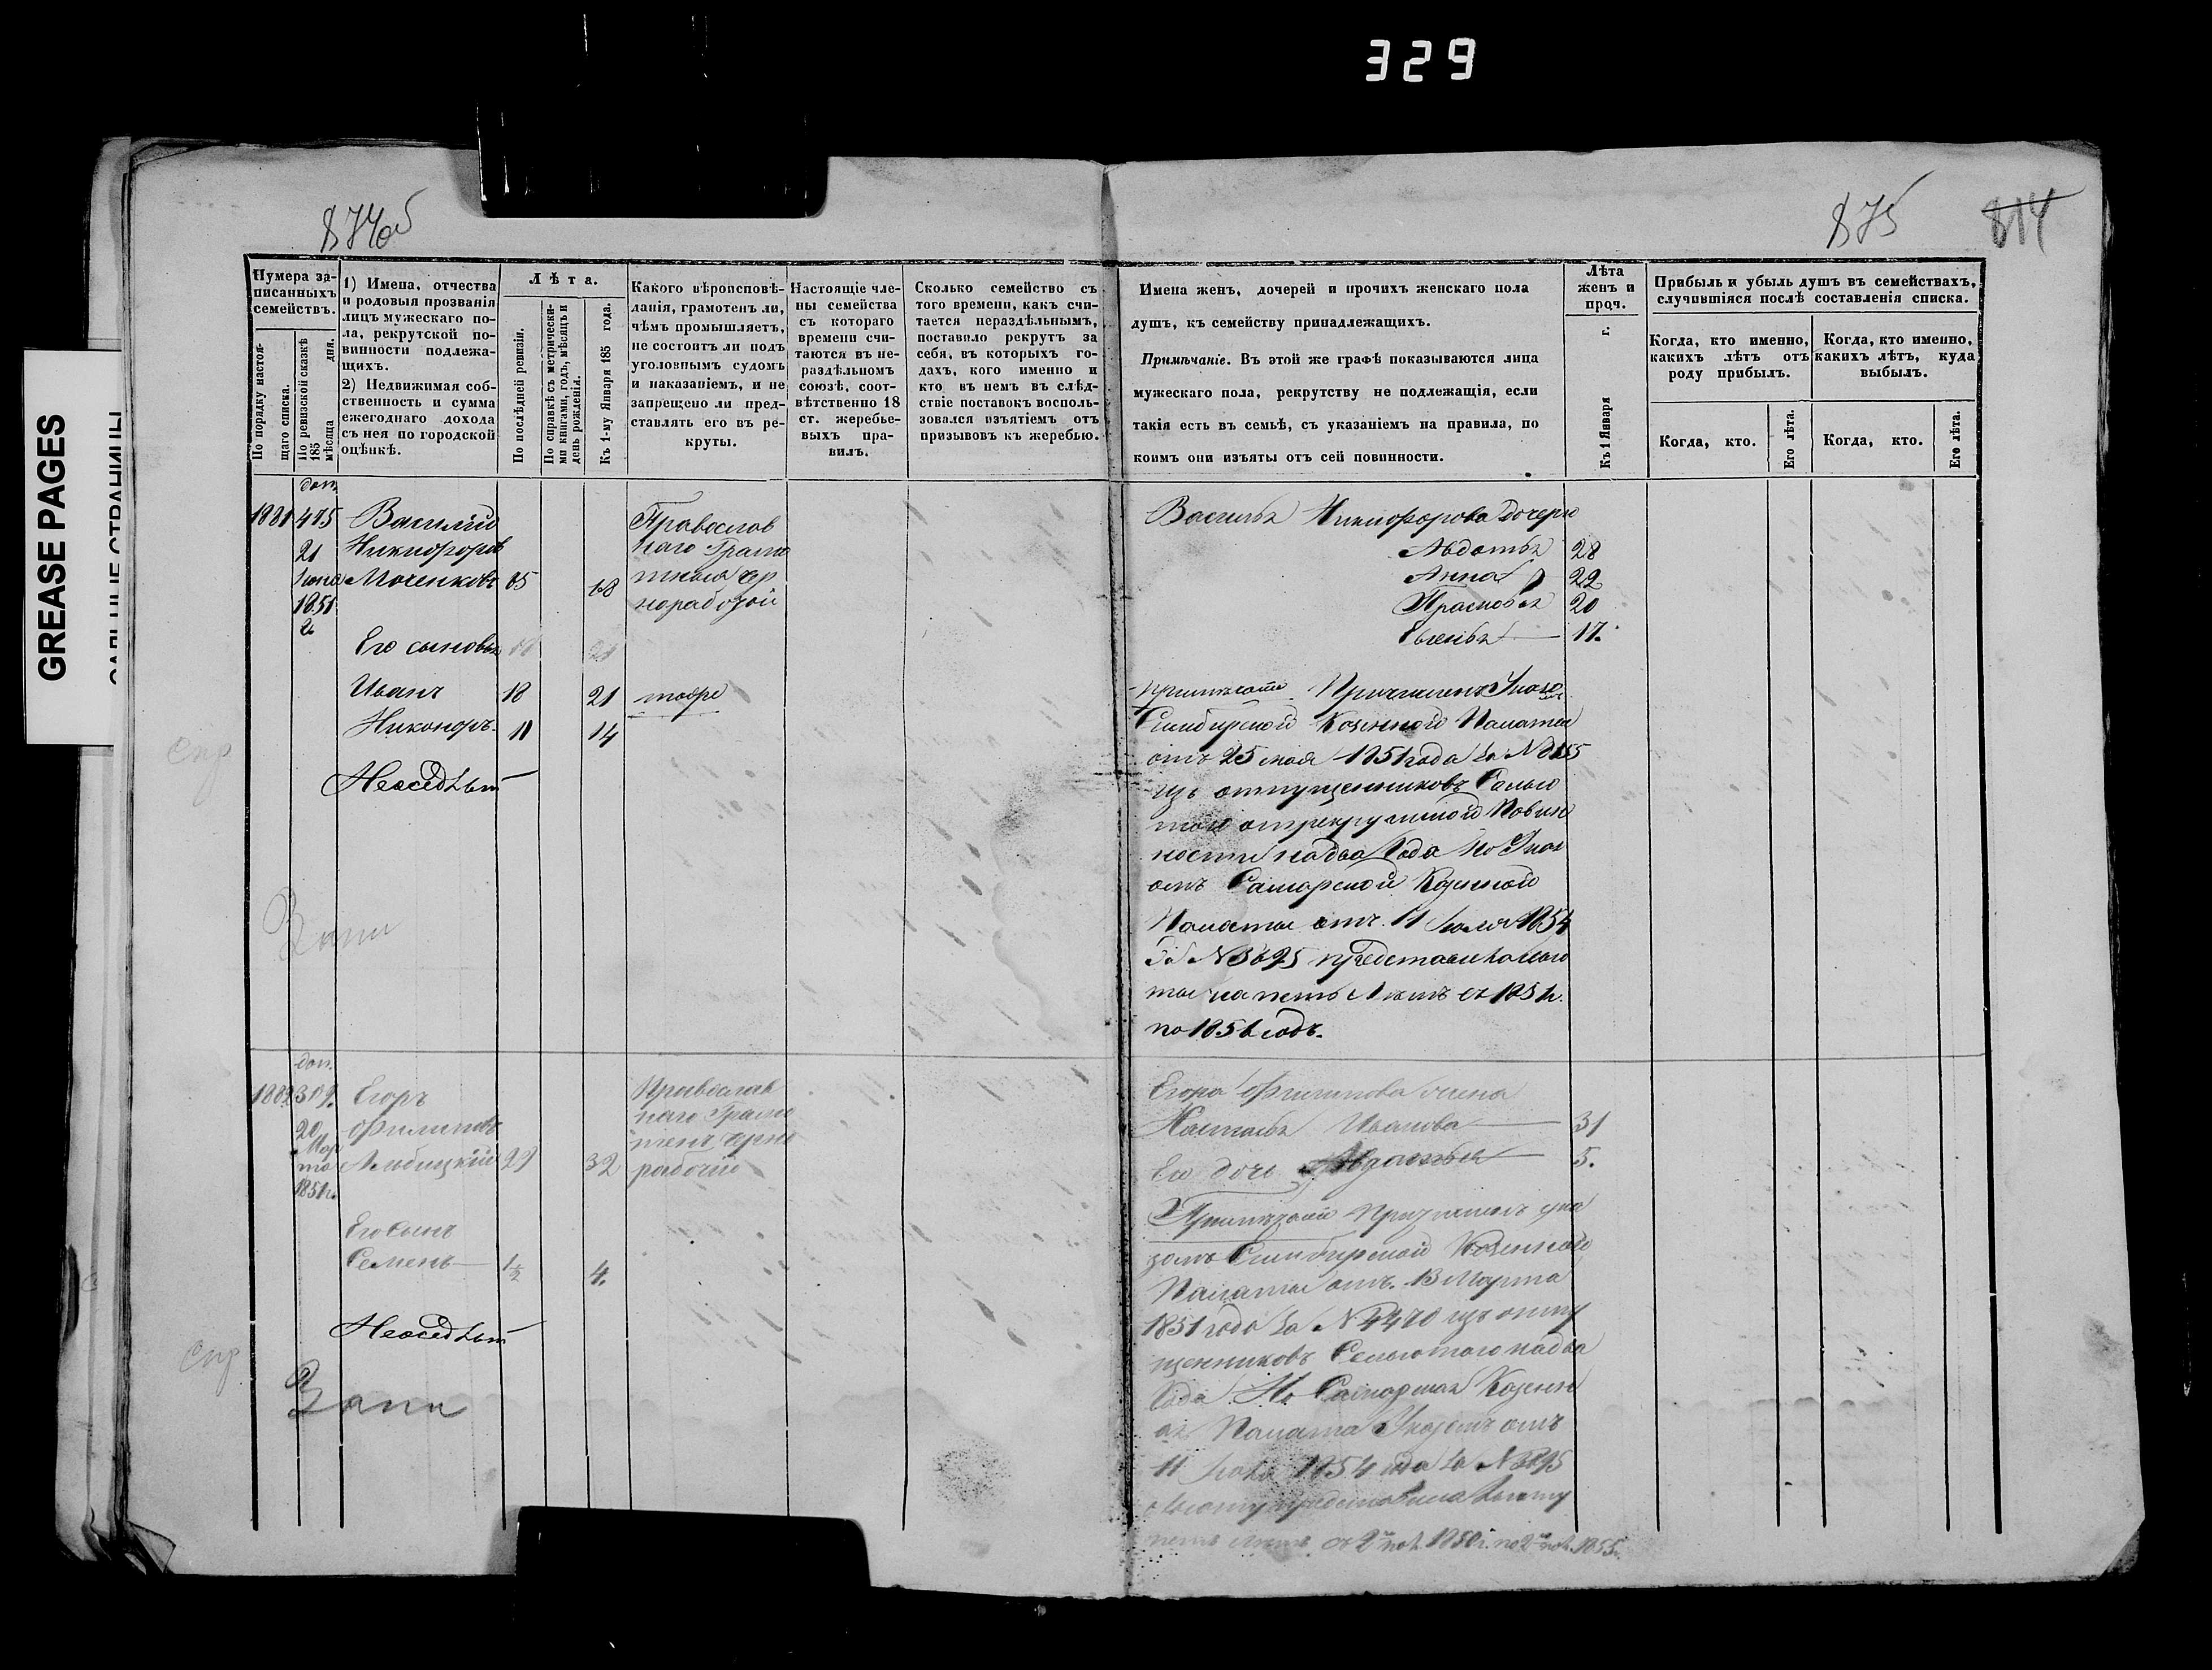 329
874об
875
814
GREASE PAGES
САЛЬНЫЕ СТРАНИЦЫ
Нумера за-
писанныхъ
семействъ.
По порядку настоя-
щаго списка.
По ревизской сказкѣ
185 дня.
мѣсяца
1) Имена, отчества
и родовыя прозванія
лицъ мужескаго по-
ла, рекрутской по-
винности подлежа-
щихъ.
2) Недвижимая соб-
ственность и сумма
ежегоднаго дохода
съ нея по городской
оцѣнкѣ.
Лѣта.
По послѣдней ревизіи.
По справкѣ съ метрически-
ми книгами, годъ, мѣсяцъ и
день рожденія.
Къ 1-му Января 185 года.
Какого вѣроисповѣ-
данія, грамотенъ ли,
чѣмъ промышляетъ,
не состоитъ ли подъ
уголовнымъ судомъ
и наказаніемъ, и не
запрещено ли пред-
ставлять его въ ре-
круты.
Настоящіе чле-
ны семейства
съ котораго
времени счи-
таются въ не-
раздѣльномъ
союзѣ, соот-
вѣтственно 18
ст. жеребье-
выхъ пра-
вилъ.
Сколько семейство съ
того времени, какъ счи-
тается нераздѣльнымъ,
поставило рекрутъ за
себя, въ которыхъ го-
дахъ, кого именно и
кто въ немъ въ слѣд-
ствіе поставокъ восполь-
зовался изъятіемъ отъ
призывовъ къ жеребью.
Имена женъ, дочерей и прочихъ женскаго пола
душъ, къ семейству принадлежащихъ.
Примѣчаніе. Въ этой же графѣ показываются лица
мужескаго пола, рекрутству не подлежащія, если
такія есть въ семьѣ, съ указаніемъ на правила, по
коимъ они изъяты отъ сей повинности.
Лѣта
женъ и
проч.
Къ 1 Января г.
Прибыль и убыль душъ въ семействахъ,
случившіяся послѣ составленія списка.
Когда, кто именно,
какихъ лѣтъ отъ
роду прибылъ.
Когда, кто именно,
какихъ лѣтъ, куда
выбылъ.
Когда, кто.
Его лѣта.
Когда, кто.
Его лѣта.
доп.
1881 475 Василій
21 Никифоровъ
1851
Православ
наго
Его сыновья
Иванъ 18 21 тоже
Никоноръ 11 14
Неоседлый
Спр
Василья Никифорова дочери
Авдотья 28
Анна 22
Прасковья 20
Евгенья 17.
Примѣчаніе Причисленъ Указо
Симбирской Казенной Палаты
отъ 25 мая 1851 года за №
изъ отпущенниковъ
отъ рекрутской Повин
ности на два Года Но Указ
омъ Самарской Казенной
Палаты отъ 11 1854
за № 3695 представлена
на пять лѣтъ съ
по 1856 годъ.
доп.
1882 319. Егоръ
20 Филиповъ
Мар
та 29 32
1851 г.
Православ
наго Грамо
тенъ черно
рабочій
Его сынъ
Семенъ 1½ 4.
Неоседлый
Спр
Егора Филипова жена
Настасья Иванова 31
Его дочь 5.
Примѣчаніе Причисленъ ука
зомъ Симбирской Казенной
Палаты отъ 13 Марта
1851 года за № 4470 изъ отпу
щенниковъ на два
Года Но Самарская Казенн
ая Палата Указомъ отъ
11 1854 года за № 3695
пять лѣтъ